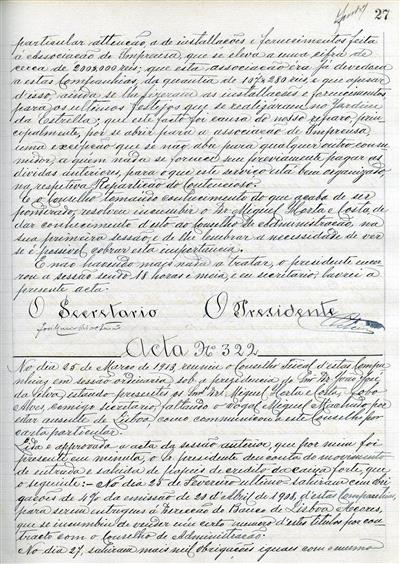 27
particular attenção a de installações e fornecimentos feita
á Associação de Imprensa, que se eleva a uma cifra de
cerca de 200$000 reis; que esta associação era já devedora
a estas Companhias, da quantia de 107$280 reis e que apesar
d'isso, ainda se lhe fizeram as installações e fornecimentos
para os ultimos festejos que se realizaram no Jardim
da Estrella; que este facto foi causa do nosso reparo, prin-
cipalmente, por se abrir para a associação de Imprensa,
uma excepção que se não abre para qualquer outro consu-
midor, a quem nada se fornece sem previamente pagar as
dividas anteriores, para o que este serviço está bem organizado
na respetiva Repartição do Contencioso.
E o Conselho tomando conhecimento do que acaba de ser
ponderado, resolveu incumbir o Sr Miguel Horta e Costa, de
dar conhecimento d'isto ao Conselho de Administração, na
sua primeira sessão, e de lhe lembrar a necessidade de ver
se é possivel cobrar esta importancia.
E mais havendo nada a tratar, o presidente encer-
rou a sessão sendo 18 horas e meia, e eu secretario, lavrei a
presente acta.
O Secretario O Presidente
Acta Nº 322
No dia 25 de Março de 1913, reuniu o Conselho Fiscal d'estas Compa-
nhias em sessão ordinaria, sob a presidencia do Snr Dr. José José
da Silva, estando presentes os Snrs Drs. Miguel Horta e Costa, Lobo
Alves, comigo secretario, faltando o vogal Miguel Machado por
estar ausente de Lisboa, como communicou a este Conselho por
carta particular.
Lida e approvada a acta da sessão anterior, que por mim foi
presente em minuta, o presidente deu conta do movimento
de entrada e sahida de papeis de credito da caixa forte, que
é o seguinte: — No dia 25 de Fevereiro ultimo sahiram cem obri-
gações de 4% da emissão de 23 d'Abril de 1908, d'estas Companhias,
para serem entregues á Direcção do Banco de Lisboa & Açores,
que se incumbiu de vender um certo numero d'estes titulos por con-
tracto com o Conselho de Administração.
No dia 27, sahiram mais mil obrigações iguaes com o mesmo